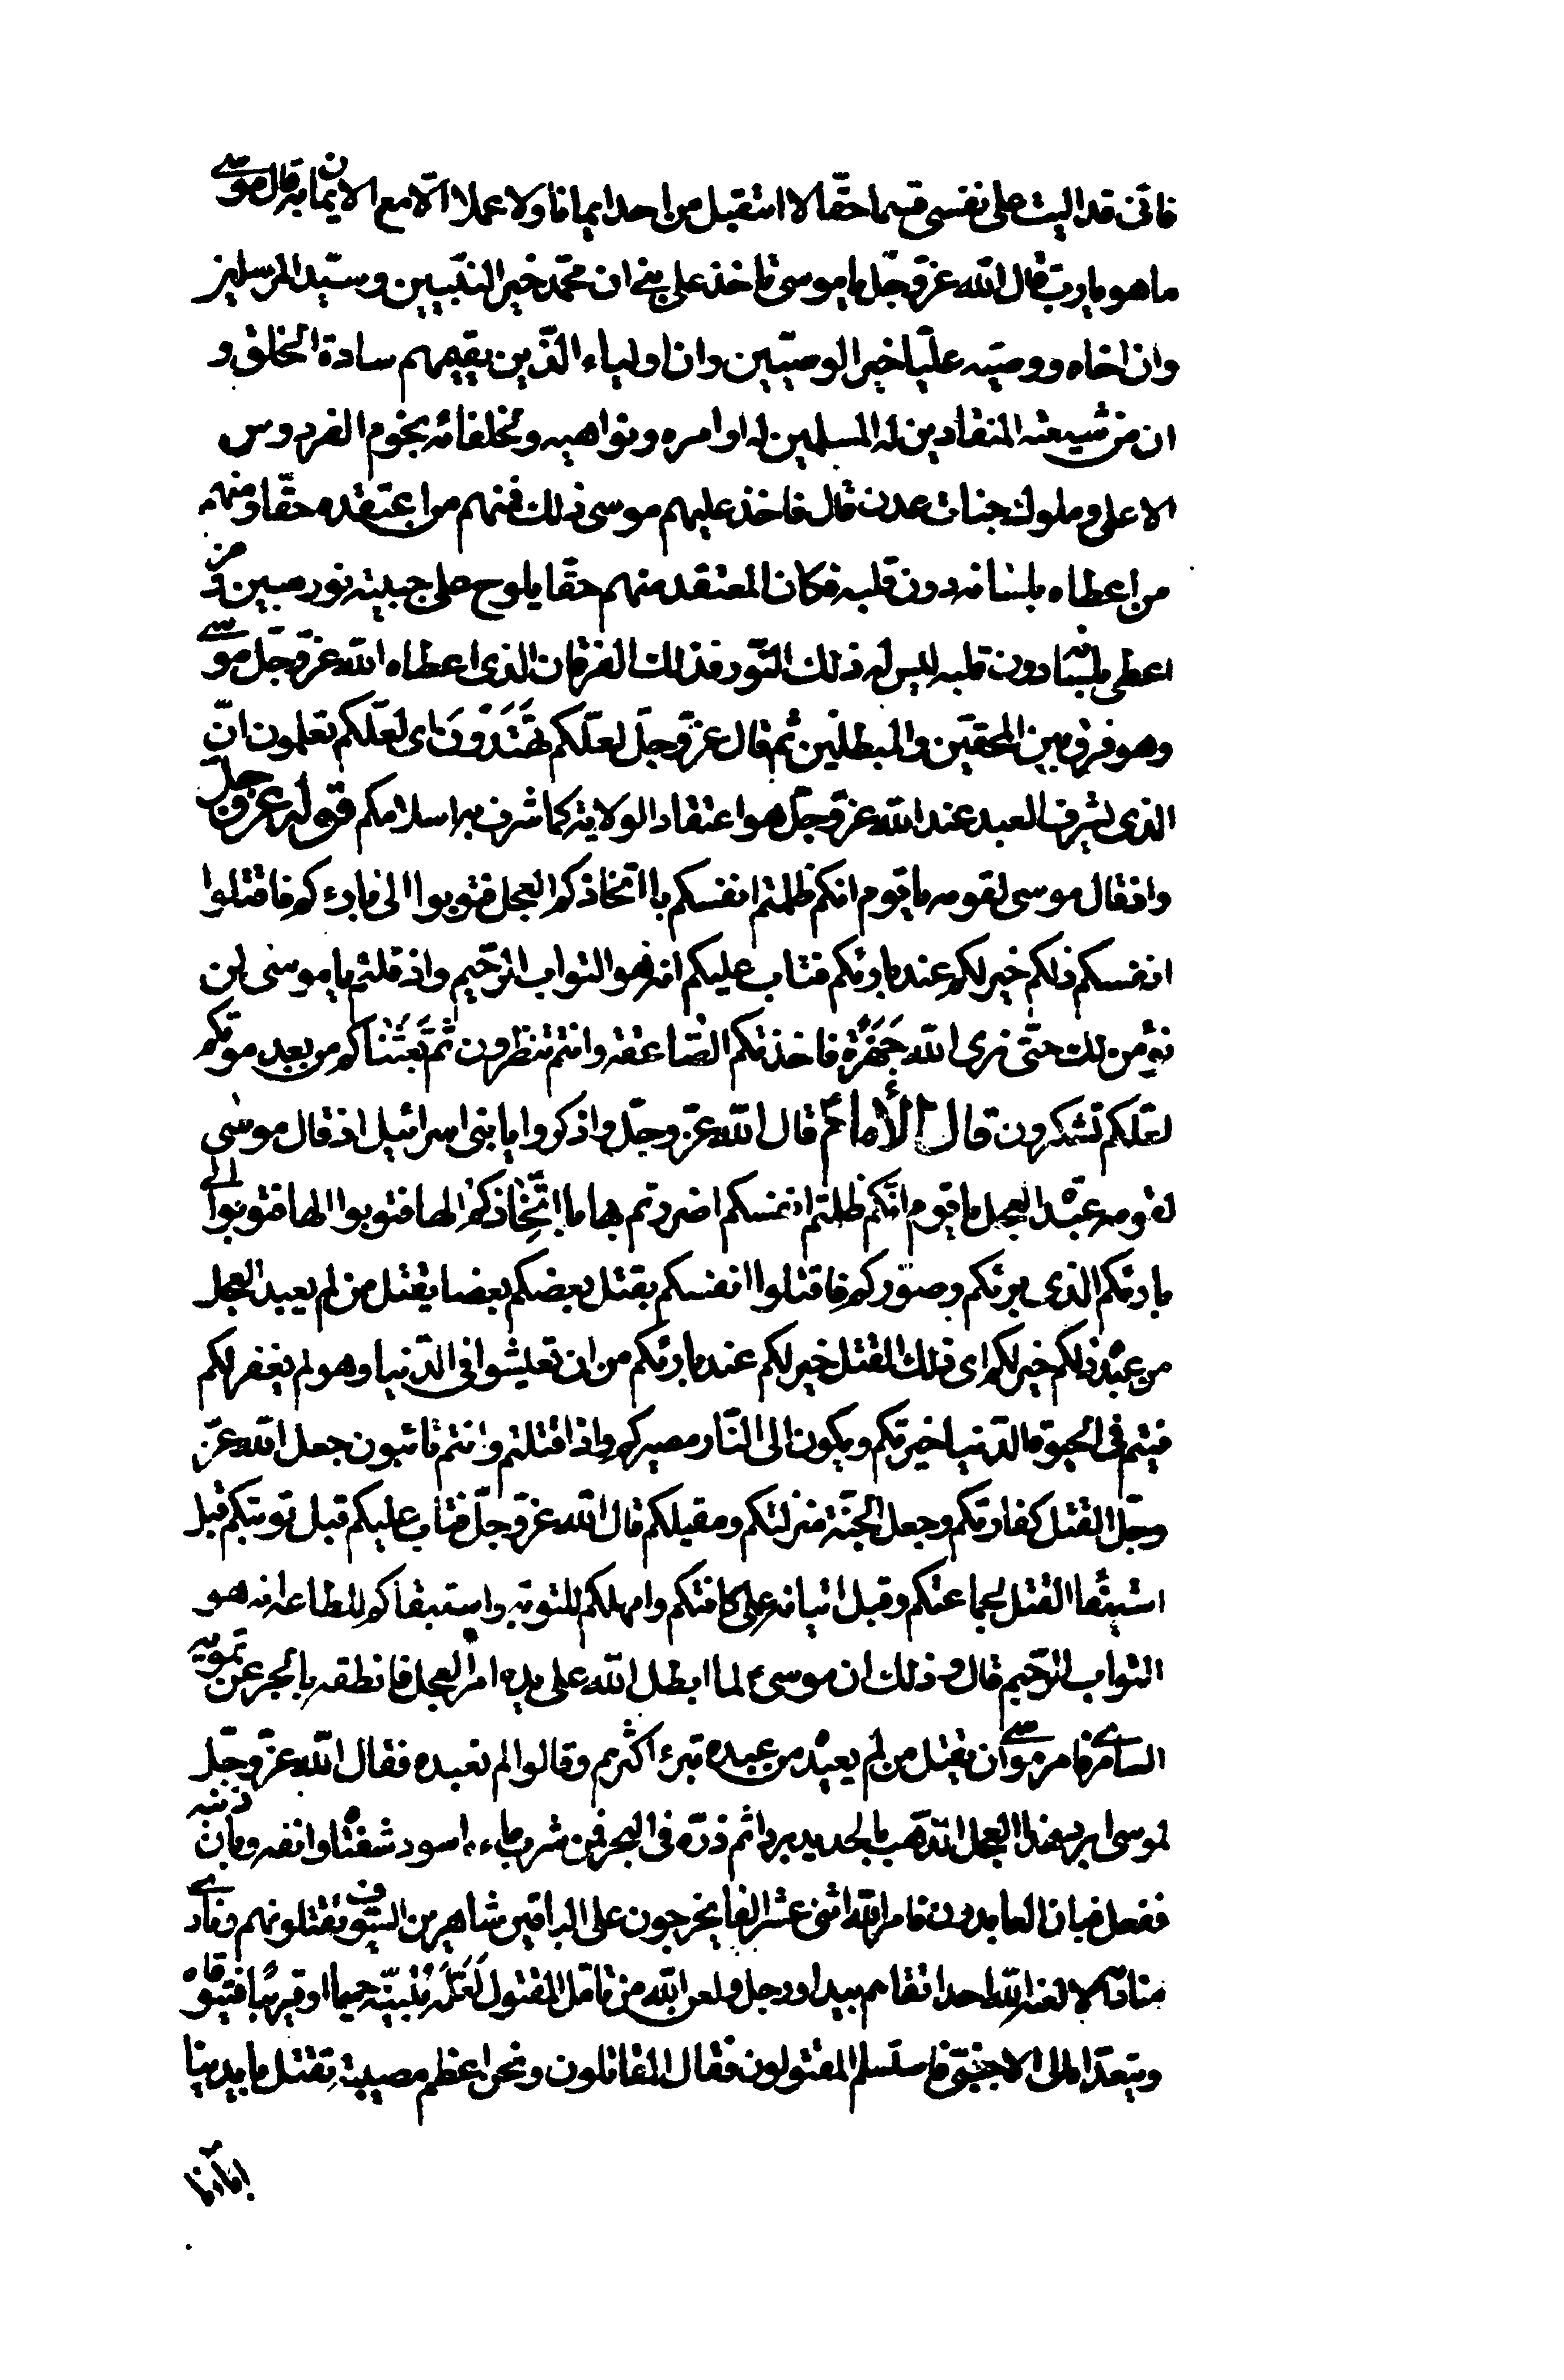 فانى قد اليت على نفسى قسما حقّا لا استقبل من احد ايمانا ولا عملا الّا مع الايمان به قال موسى
ما هو يا رب قال الله عزّ وجلّ يا موسى تاخذ على بنى ان محمّد خير النبّيين وسيّد المرسلين
وان اخاه ووصيّه عليّا خير الوصيّين وان اولياء الّذين يقيمهم سادة الخلق و
ان من شيعته المنقادين له المسلمين له اوامره ونواهيه ولخلفائه نجوم الفردوس
الاعلى وملوك جنات عدن قال فاخذ عليهم موسى ذلك فمنهم من اعتقده حقّا ومنهم
من اعطاه بلسانه دون قلبه فكان المعتقد منهم حقّا يلوح على جبينه نور مبين ومن
اعطى بلسانه دون قلبه ليس له ذلك النّور فذلك الفرقان الذى اعطاه الله عزّ وجلّ موسى
وهو فرق بين المحقيّن والمبطلين ثم قال عزّ وجلّ لعلّكم تَهْتَدُونَ اى لعلّكم تعلمون انّ
الذى يشرف العبد عند الله عزّ وجلّ هو اعتقاد الولاية كما شرف به اسلافكم قوله عزّ وجل
واذ قال موسى لقومه يا قوم انكم ظلمتم انفسكم باتّخاذكم العجل فتوبوا الى بارئكم فاقتلوا
انفسكم ذلكم خير لكم عند بارئكم فتاب عليكم انه هو التواب الرّحيم واذ قلتم يا موسى لن
نؤمن لك حتّى نرى الله جَهْرَةً فاخذتكم الصّاعقة وانتم تنظرون ثُمَّ بَعَثْنَاكم من بعد موتكم
لعلكم تشكرون قال الأمام ع قال الله عزّ وجلّ واذكروا يا بنى اسرائيل اذ قال موسى
لقومه عبدة العجل يا قوم انّكم ظلمتم انفسكم اضررتم بها باتّخاذكم الها فتوبوا الها فتوبوا الى
بارئكم الّذى برئكم وصوّركم فاقتلوا انفسكم بقتل بعضكم بعضا يقتل من لم يعبد العجل
من عبده ذلكم خير لكم اى ذلك القتل خير لكم عند بارئكم من ان تعيشوا فى الدّنيا وهو لم يغفر لكم
فيتم فى الحيوة الدّنيا خيرتكم ويكون الى النّار مصيركم واذا قتلتم وانتم تائبون جعل الله عزّ
وجلّ القتل كفارتكم وجعل الجنّة منزلتكم ومقيلكم قال الله عزّ وجلّ فتاب عليكم قبل توبتكم قبل
استيفا القتل لجماعتكم وقبل اتيانه على كافتكم وامهلكم للتوبة واستبقاكم للطاعة انه هو
التواب الرّحيم قال و ذلك ان موسى ع لما ابطل الله على يده امر العجل فانطقه بالخبر عن تمويه
السامرى فامر موسى ان يقتل من لم يعبده من عبده تبرء اكثرهم وقالوا لم نعبده فقال الله عزّ وجلّ
لموسى ابرد هذا العجل الذّهب بالحديد بردا ثم ذرّه فى البحر فمن شرب ماءه اسود شفتاه وانفه وبان ذنبه
ففعل فبان العابدون فامر الله اثنى عشر الفا يخرجون على الباقين شاهرين السّيوف يقتلونهم ونادى
مناديه الا لعن الله احدا اتقاهم بيد او رجل ولعن الله من تامل المقتول لَعَلَّهُ يتبيّنه حميما او قريبا فيتوقاه
ويتعدّاه الى الاجنبىّ فاستسلم المقتولون فقال القاتلون ونحن اعظم مصيبة نقتل بايدينا